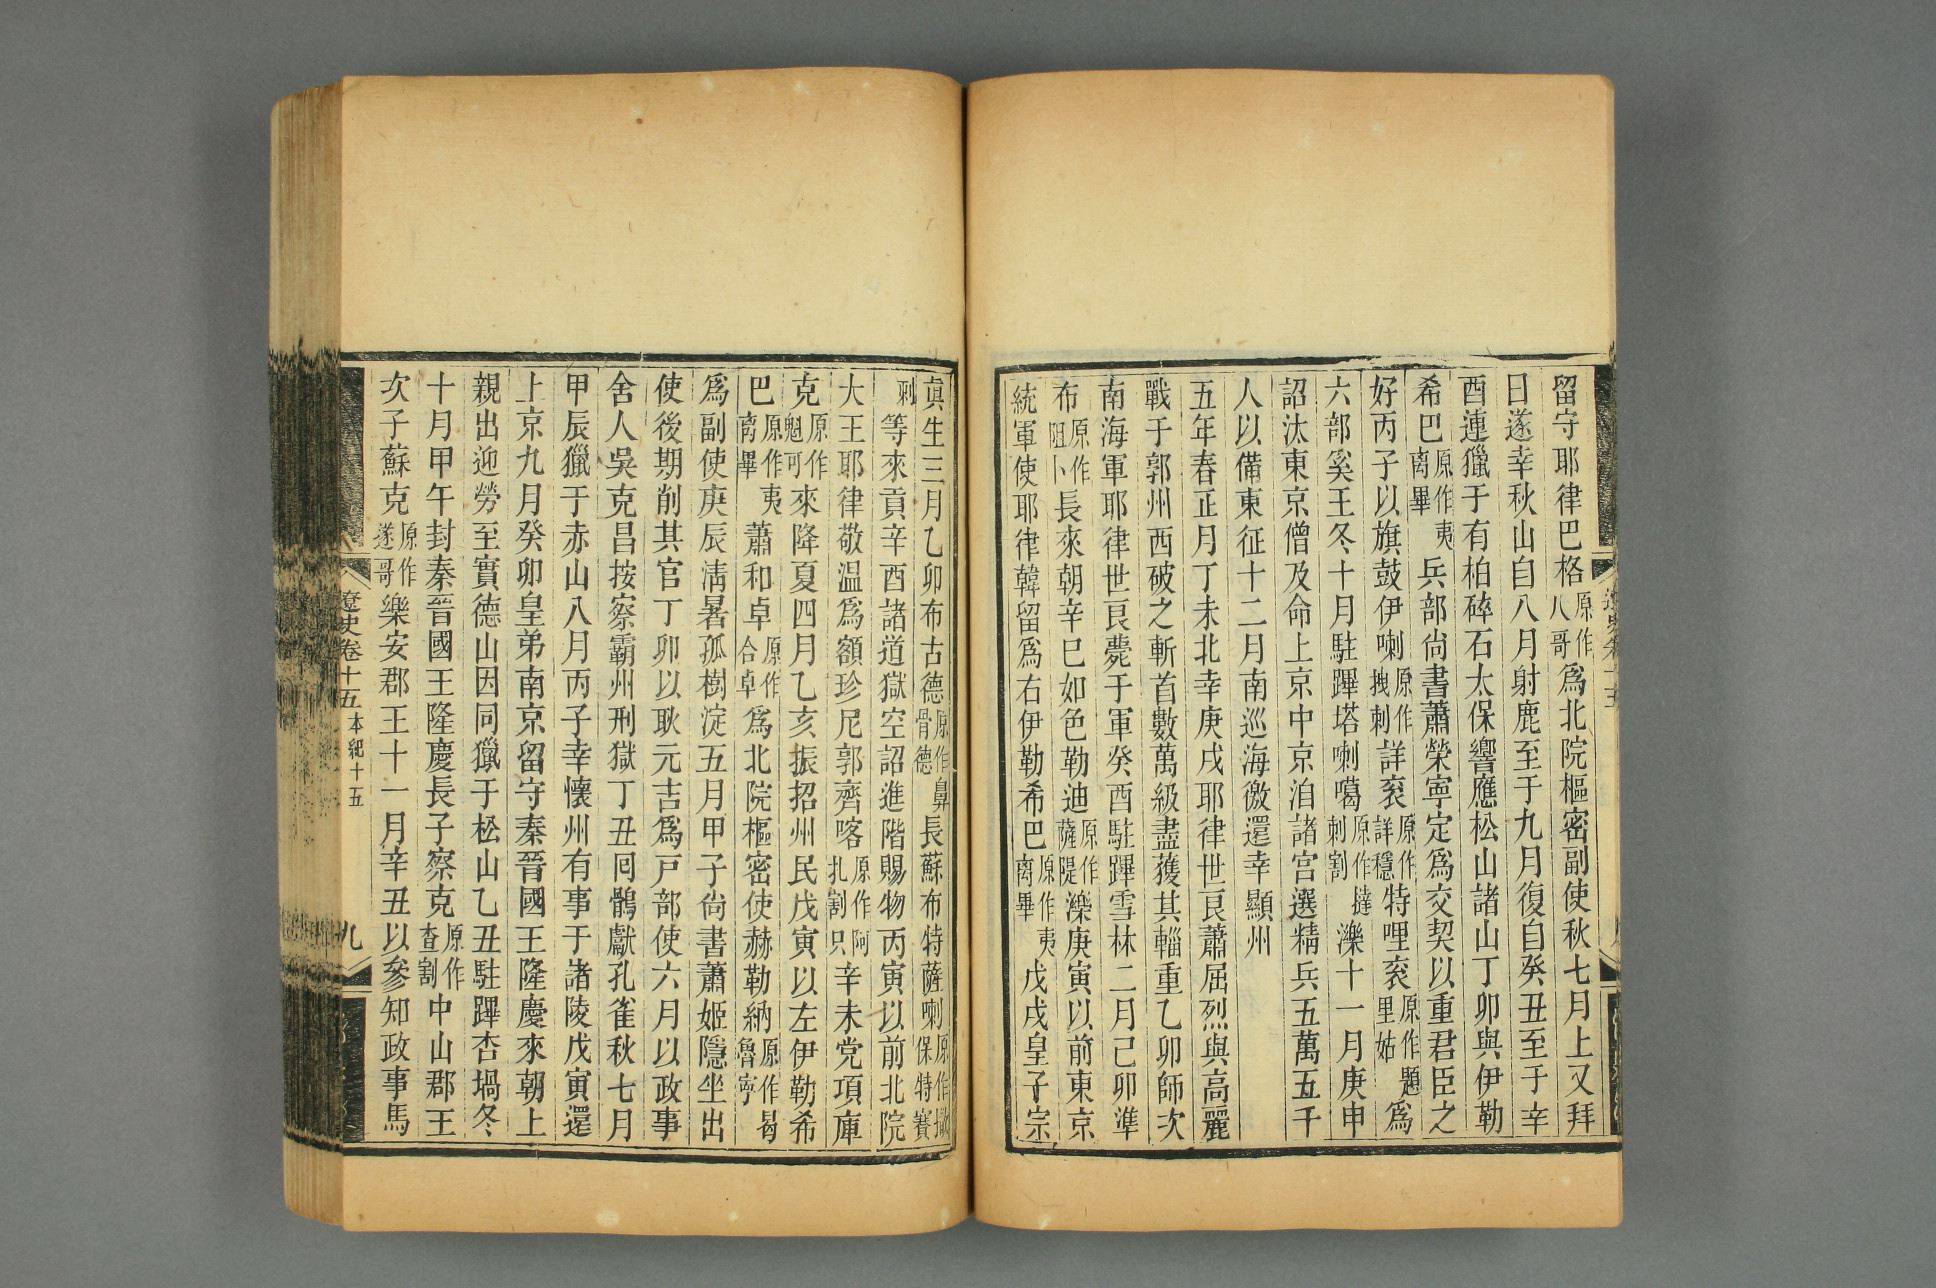 留守耶律巴格原作八哥爲北院樞密副使秋七月上又拜
日遂幸秋山自八月射鹿至于九月復自癸丑至于辛
酉連獵于有柏碎石太保響應松山諸山丁卯與伊勒
希巴原作夷离畢兵部尙書蕭榮寧定爲交契以重君臣之
好丙子以旗鼓伊喇原作拽刺詳衮原作詳穩特哩衮原作題里姑爲
六部奚王冬十月駐蹕塔喇噶原作撻刺割濼十一月庚申
詔汰東京僧及命上京中京洎諸宮選精兵五萬五千
人以備東征十二月南巡海徼還幸顯州
五年春正月丁未北幸庚戌耶律世良蕭屈烈與高麗
戰于郭州西破之斬首數萬級盡獲其輜重乙卯師次
南海軍耶律世良薨于軍癸酉駐蹕雪林二月己卯準
布原作阻卜長來朝辛巳如色勒迪原作薩隄濼庚寅以前東京
統軍使耶律韓留爲右伊勒希巴原作夷离畢戊戌皇子宗
眞生三月乙卯布古德原作鼻骨德長蘇布特薩喇原作撒保特賽
剌等來貢辛酉諸道獄空詔進階賜物丙寅以前北院
大王耶律敬温爲額珍尼郭齊喀原作阿扎割只辛未党項庫
克原作魁可來降夏四月乙亥振招州民戊寅以左伊勒希
巴原作夷离畢蕭和卓原作合卓爲北院樞密使赫勒納原作曷魯寧
爲副使庚辰淸暑孤樹淀五月甲子尙書蕭姬隱坐出
使後期削其官丁卯以耿元吉爲戸部使六月以政事
舍人吳克昌按察霸州刑獄丁丑囘鶻獻孔雀秋七月
甲辰獵于赤山八月丙子幸懷州有事于諸陵戊寅還
上京九月癸卯皇弟南京留守秦晉國王隆慶來朝上
親出迎勞至實德山因同獵于松山乙丑駐蹕杏堝冬
十月甲午封秦晉國王隆慶長子察克原作查割中山郡王
次子蘇克原作遂哥樂安郡王十一月辛丑以參知政事馬
遼史卷十五 本紀十五
九